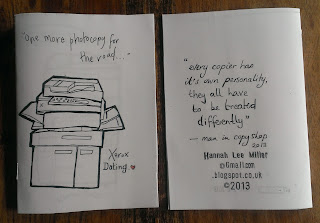 "One more photocopy for
the road..."
Xerox
Dating.
"every copier has
it's own personality,
they all have
to be treated
differently"
— man in copy shop
2013
Hannah Lee Miller
@Gmail.com
.blogspot.co.uk
©2013